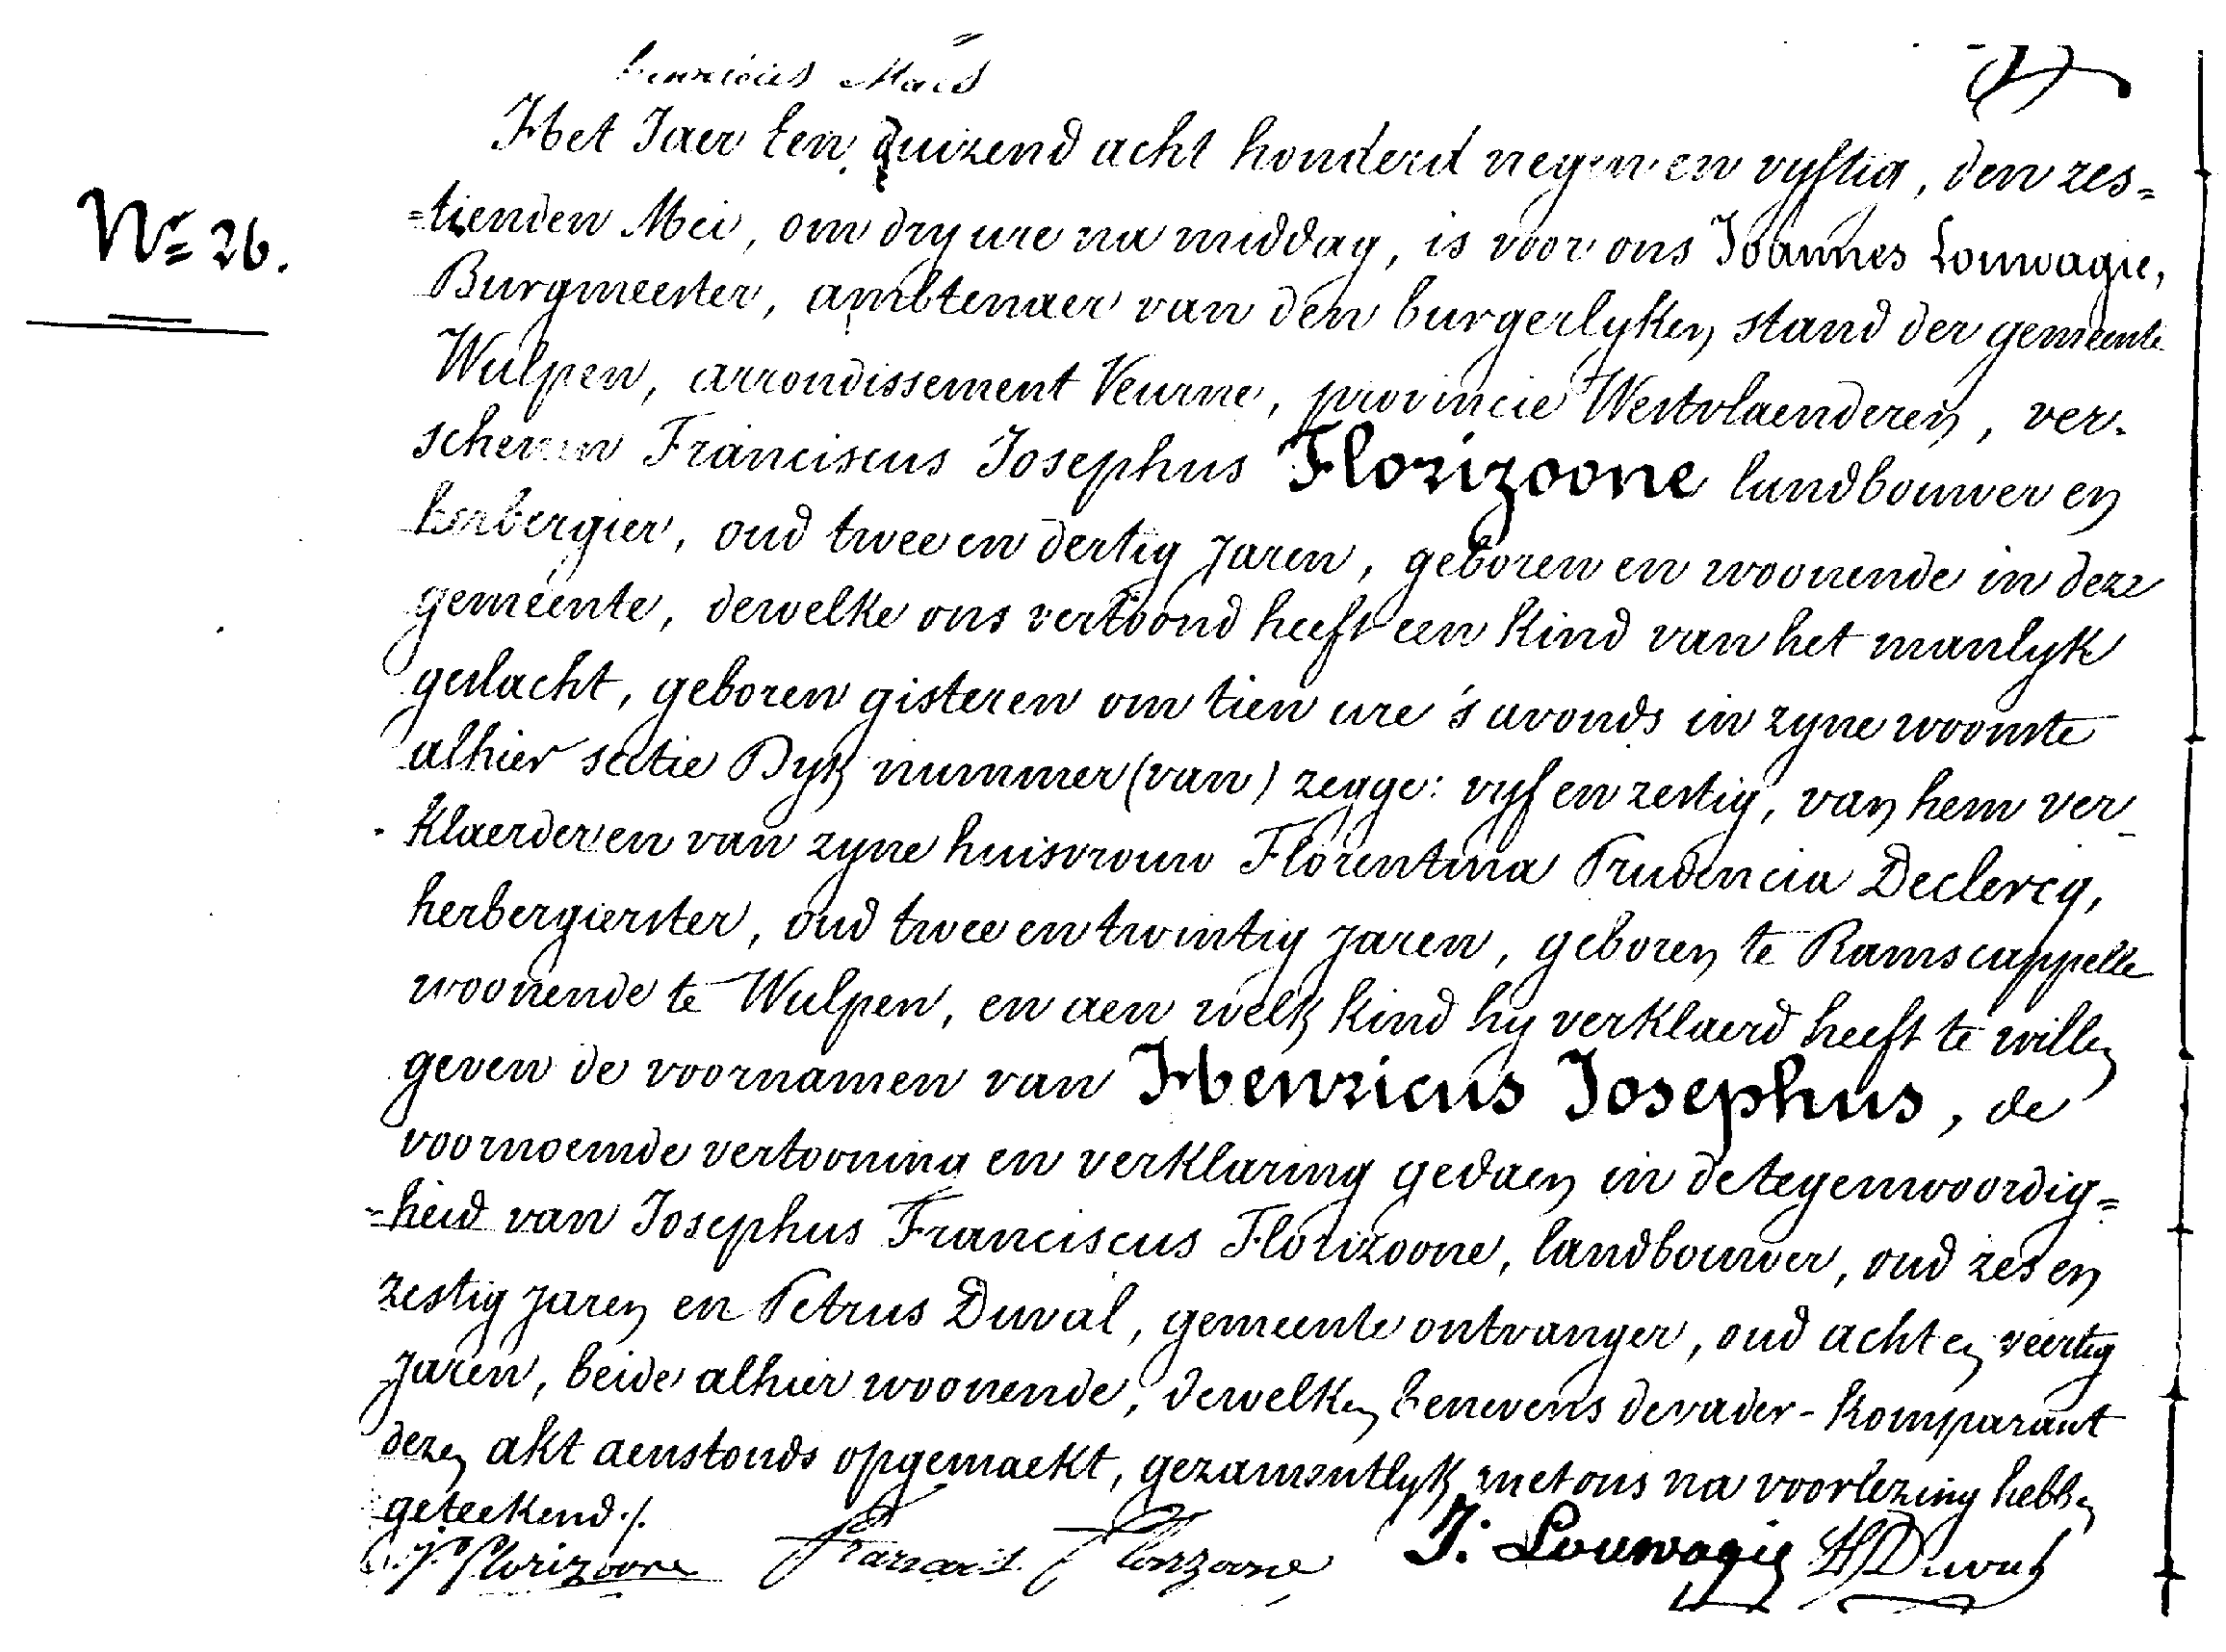 Henricus Maes
Het Jaer Een duizend acht honderd negen en vyftig, den zes=
Nr 26.
=tienden Mei, om dry ure na middag, is voor ons Joannes Louwagie,
Burgmeester, ambtenaer van den burgerlyken stand der gemeente
Wulpen, arrondissement Veurne, provincie Westvlaenderen, ver-
schenen Franciscus Josephus Florizoone landbouwer en
herbergier, oud twee en dertig jaren, geboren en woonende in deze
gemeente, dewelke ons vertoond heeft een kind van het manlyk
geslacht, geboren gisteren om tien ure 's avonds in zyne woonste
alhier sectie Dyk nummer (van) zegge: vyf en zestig, van hem ver-
klaerder en van zyne huisvrouw Florentina Prudencia Declercq,
herbergierster, oud twee en twintig jaren, geboren te Ramscappelle
woonende te Wulpen, en aen welk kind hy verklaerd heeft te willen
geven de voornamen van Henricus Josephus, de
voornoemde vertooning en verklaring gedaen in de tegenwoordig=
=heid van Josephus Franciscus Florizoone, landbouwer, oud zes en
zestig jaren en Petrus Duval, gemeente ontvanger, oud acht en veertig
jaren, beide alhier woonende, dewelken benevens de vader-komparant
dezen akt aenstonds opgemaekt, gezamentlyk met ons na voorlezing hebben
geteekend ./.
Florizoone Francois Florizoone J. Louwagie Duval